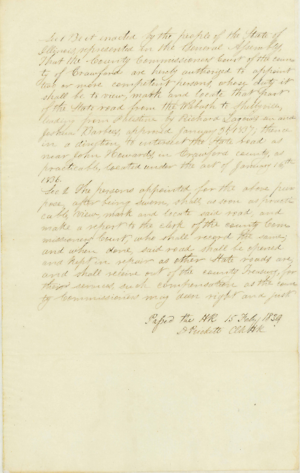 Sec 1 Be it enacted by the people of the State of
Illinois, represented in the General Assembly
That the County Commissioners Court of the coun
ty of Crawford are hereby authorized to appoint
two or more competent persons whose duty it
shall be to view, mark and locate that part
of the State road from the Wabash to Shelbyville
leading from Palestine by Richard
Joshua Barbees, approved January 1837, thence
in a direction to intersect the State road at
near John Howards in Crawford county, as
practicable, located under the act of January 16th
1836.
Sec 2 The persons appointed for the above pur
pose, after being sworn shall as soon as practi
cable view, mark and locate said road, and
make a report to the clerk of the county Com
missioners Court, who shall record the same
and when done, said road shall be opened
and kept in repair as other State roads are,
and shall receive out of the county Treasury, for
their services, such compensation as the coun
ty Commissioners may deem right and just
Passed the H R 15 Feby 1839
D Prickett Clk H R